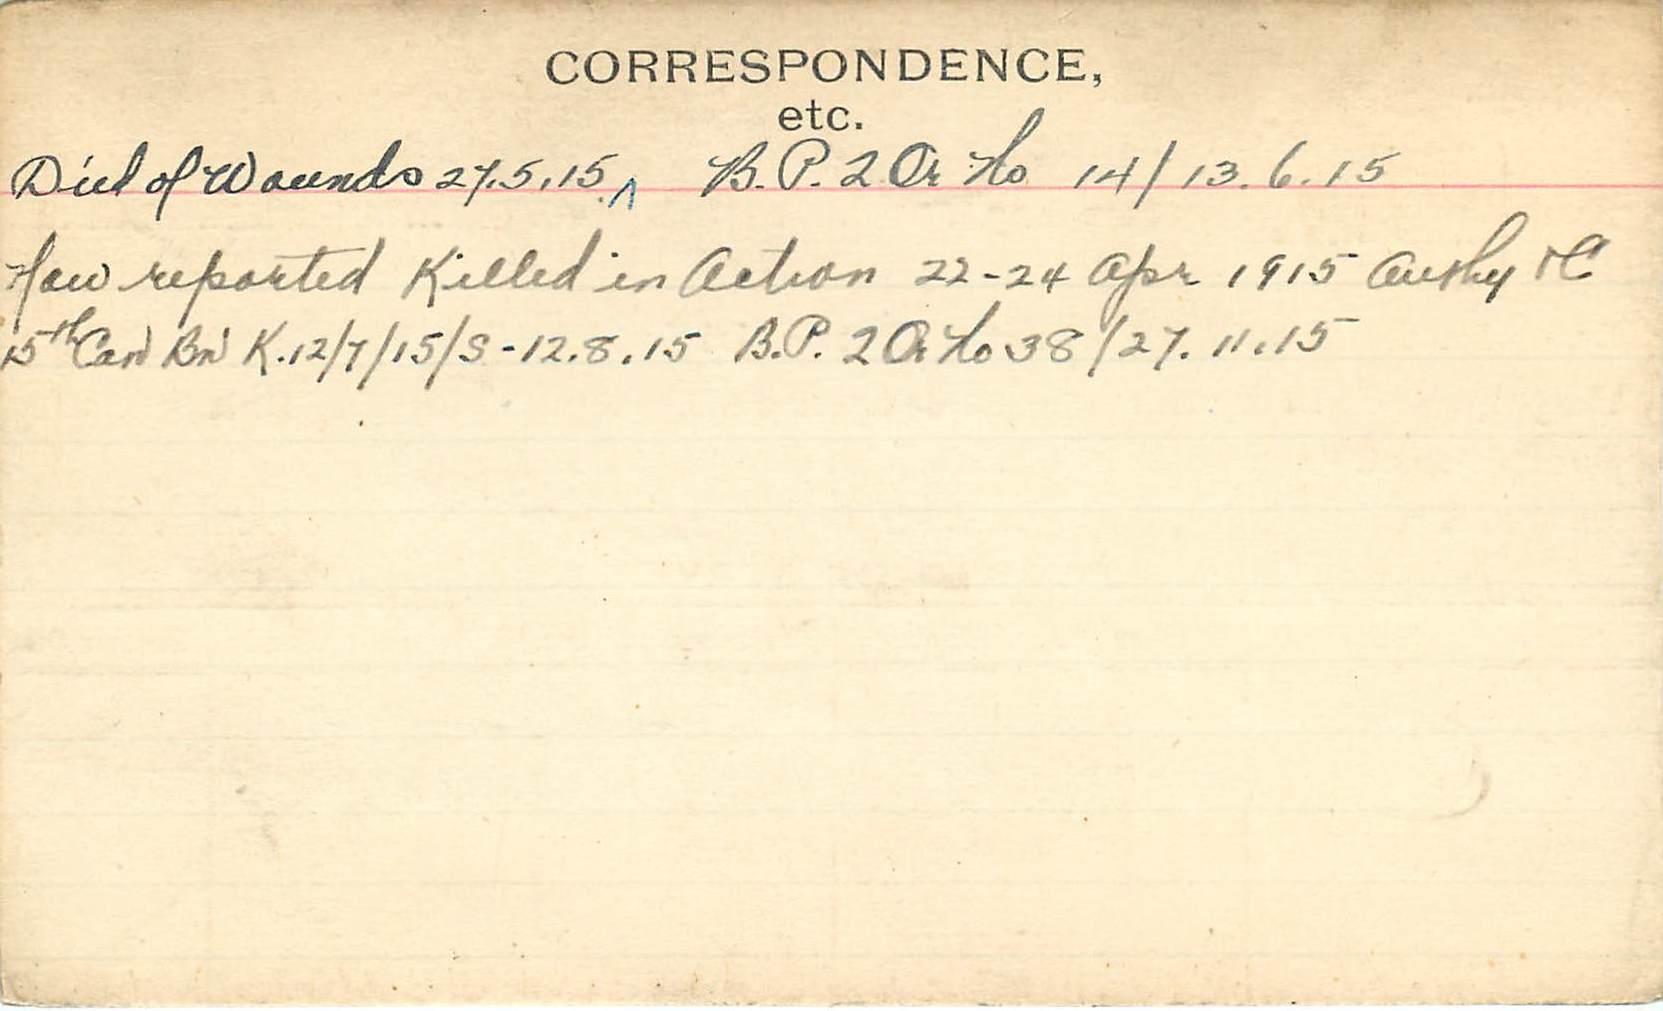 CORRESPONDENCE,
etc.
Died of Wounds 27.5.15 ^ B.P. 2 Or No 14/13.6.15
Now reported Killed in Action 22-24 Apr 1915 Authy OC
15th Can Bn K.12/7/15/S-12.8.15 B.P. 2 Or No 38/27.11.15